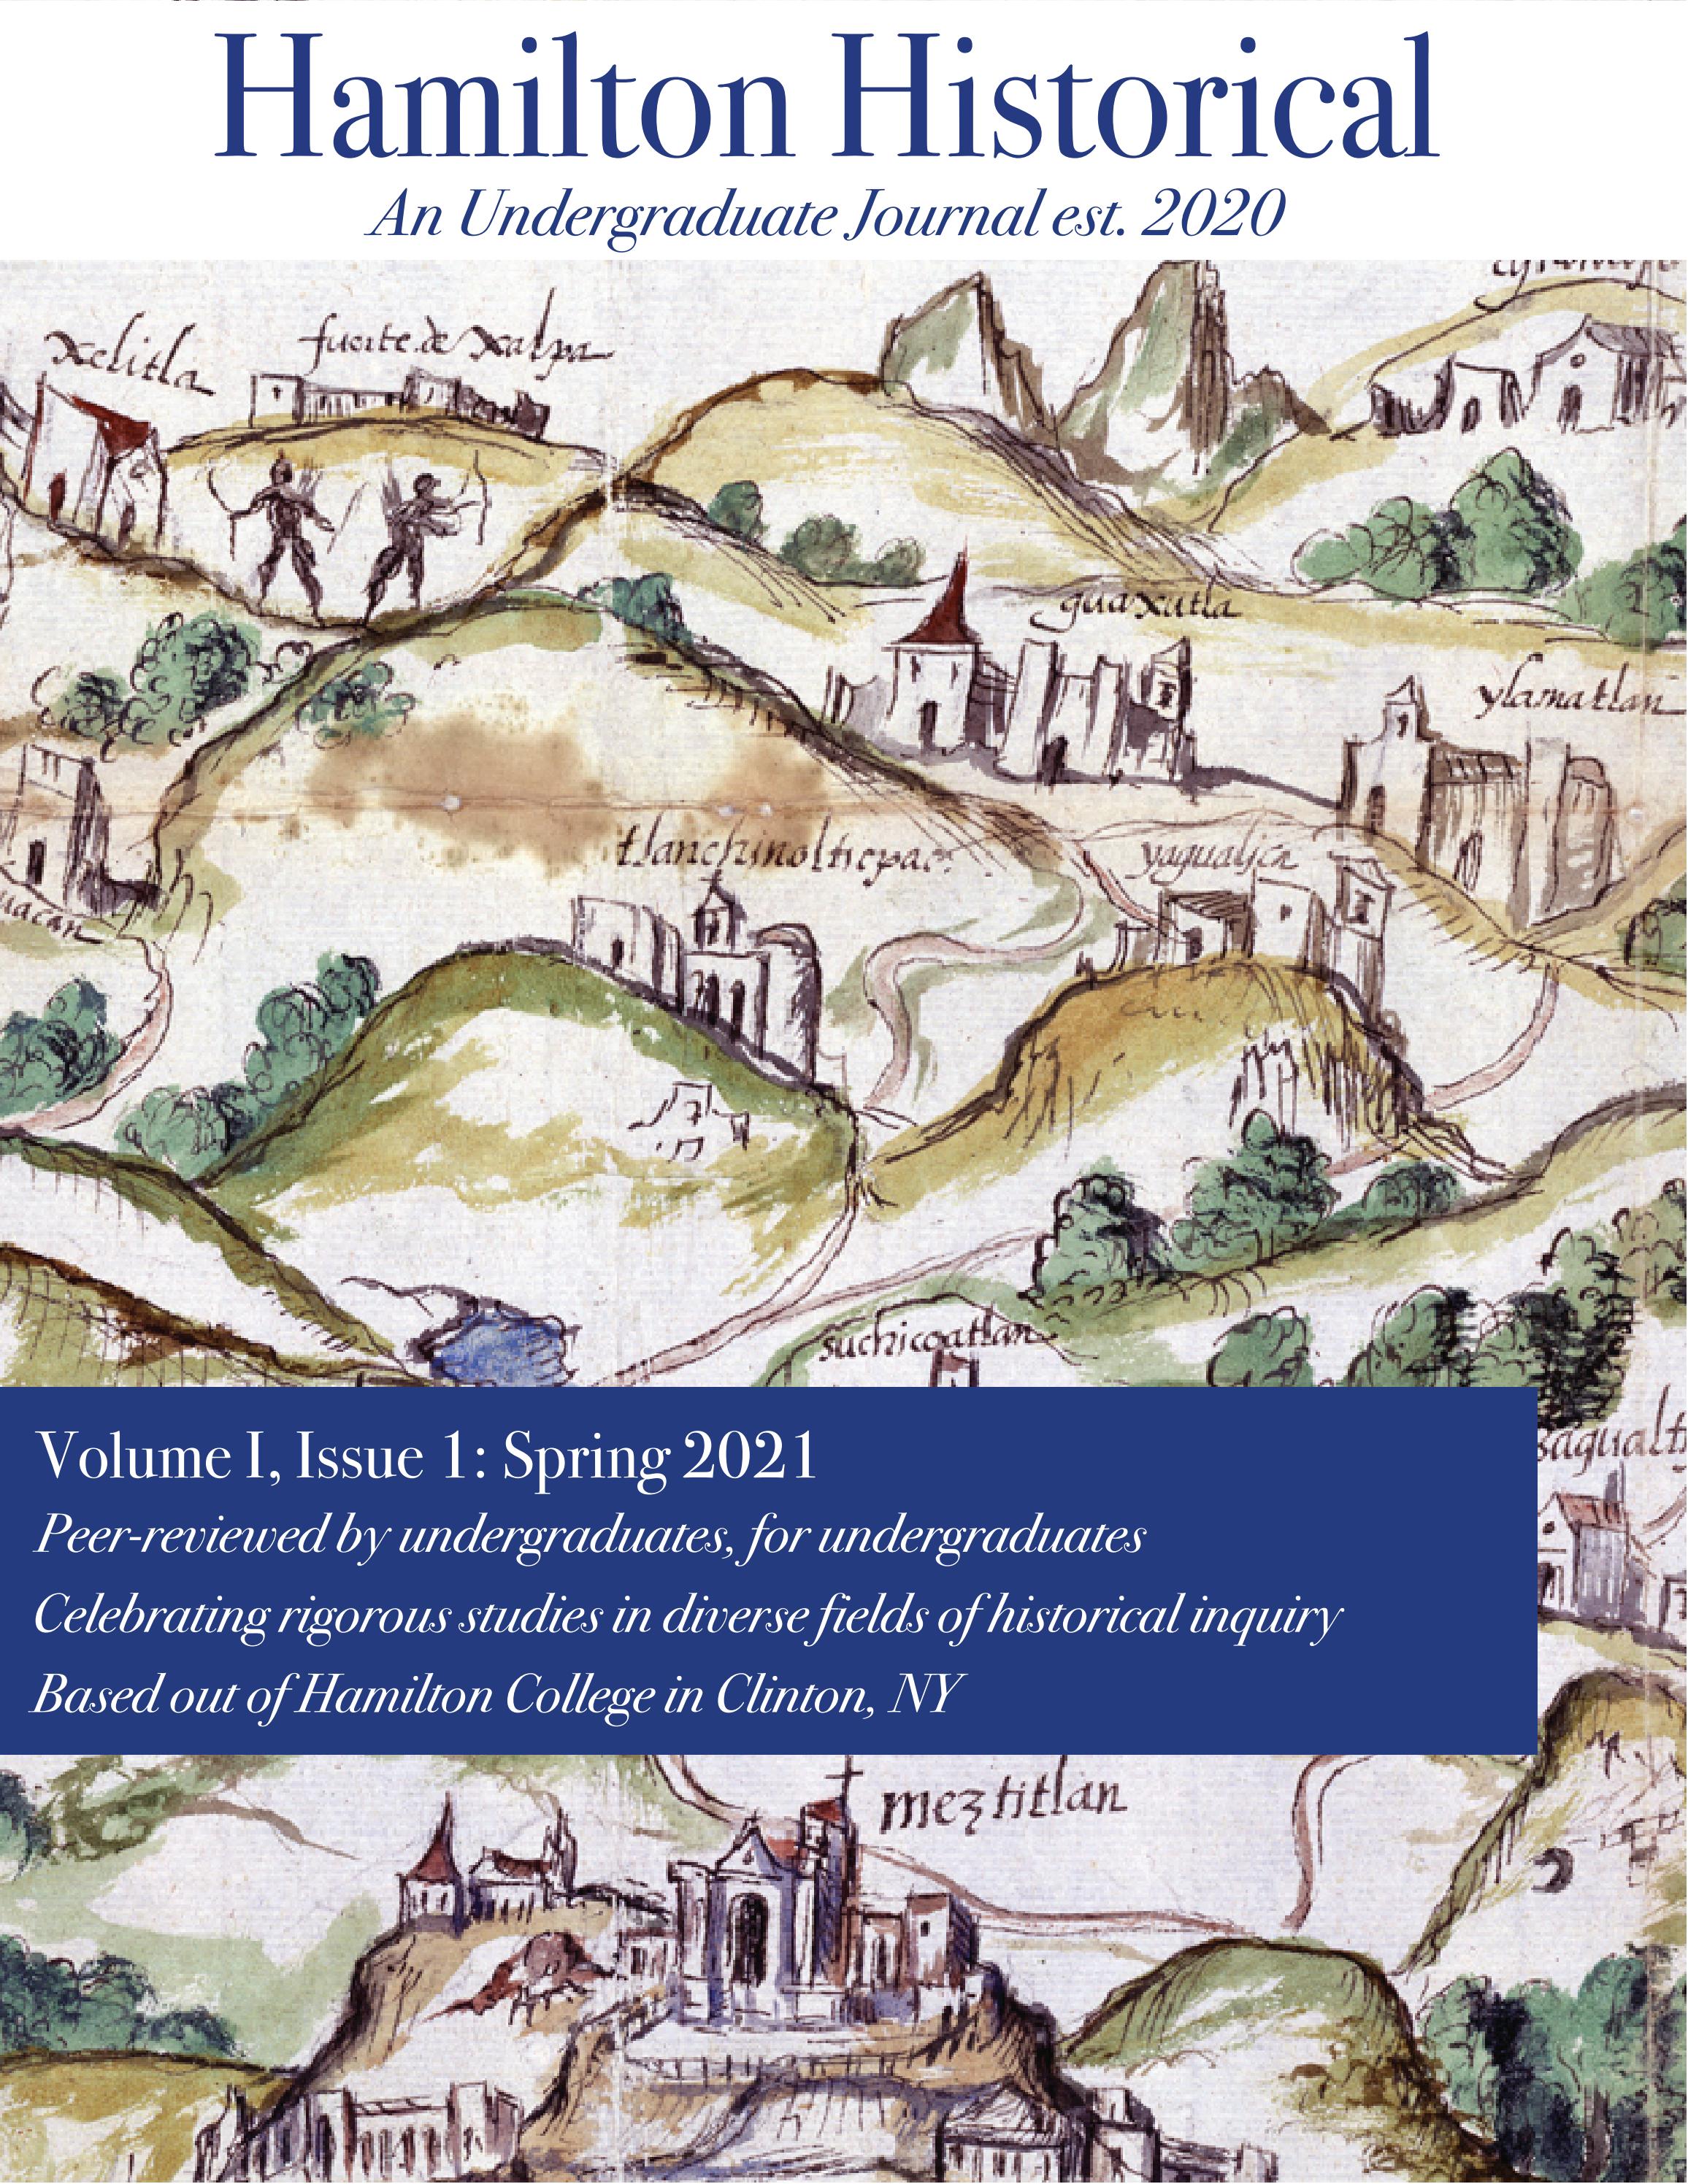 Hamilton Historical
An Undergraduate Journal est. 2020
xelitla
fuerte de xalpa
guaxutla
ylamatlan
tlanchinolticpac
yagualica
suchicoatlan
Volume I, Issue 1: Spring 2021
Peer-reviewed by undergraduates, for undergraduates
Celebrating rigorous studies in diverse fields of historical inquiry
Based out of Hamilton College in Clinton, NY
meztitlan